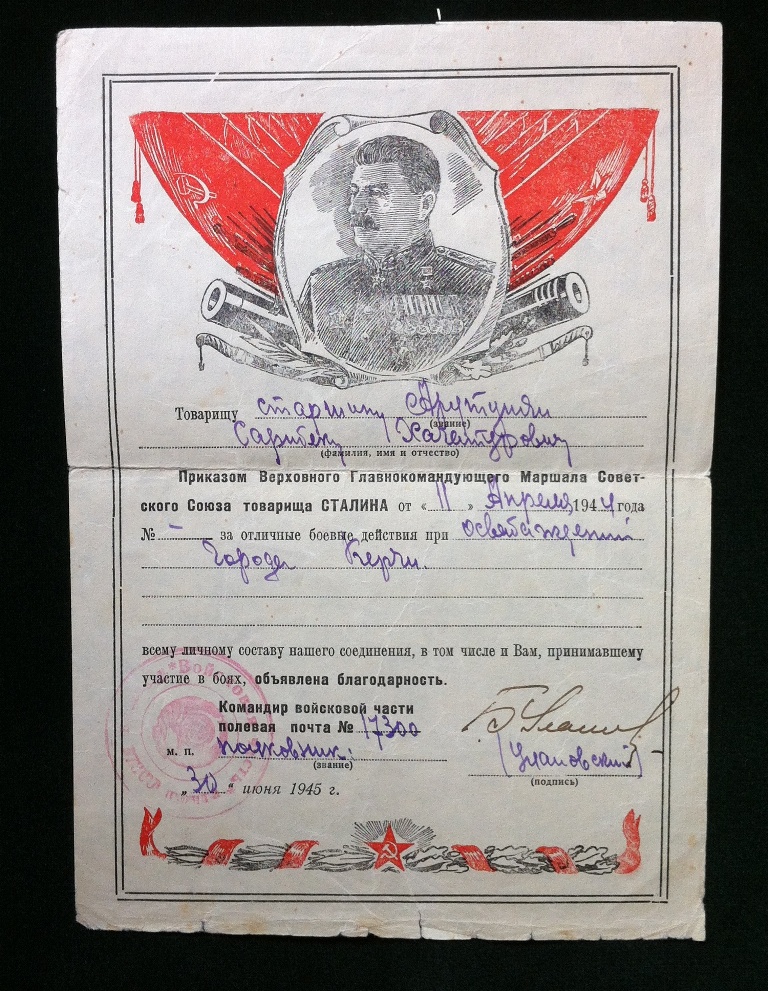 Товарищу старшину Арутунян
(звание)
Сарибеку Хачатурович
(фамилия, имя и отчество)
Приказом Верховного Главнокомандующего Маршала Совет-
ского Союза товарища СТАЛИНА от «11» Апреля 1944 года
№ - за отличные боевые действия при
города Керчи.
всему личному составу нашего соединения, в том числе и Вам, принимавшему
участие в боях, объявлена благодарность.
Командир войсковой части
полевая почта № 17300
м. п. полковник:
(звание)
(Улановский)
(подпись)
„30“ июня 1945 г.